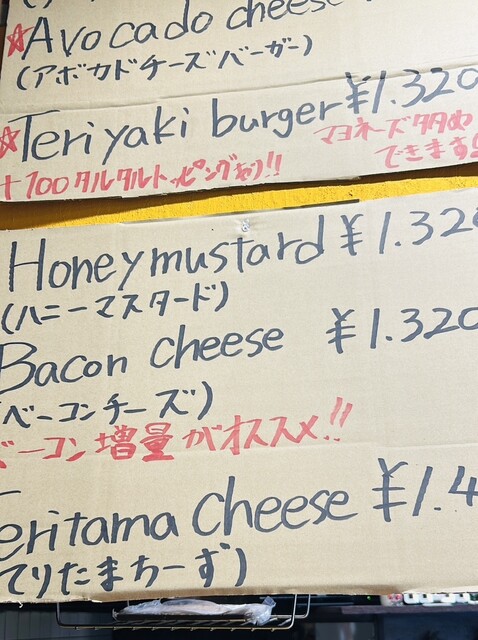 ☆Avocado cheese
(アボカドチーズバーガー)
☆Teriyaki burger ¥1.320
マヨネーズ多め
できます!!
+100タルタルトッピング有り!!
Honey mustard ¥1.320
(ハニーマスタード)
Bacon cheese ¥1.320
(ベーコンチーズ)
ベーコン増量がオススメ!!
Teritama cheese ¥1.4
てりたまちーず)